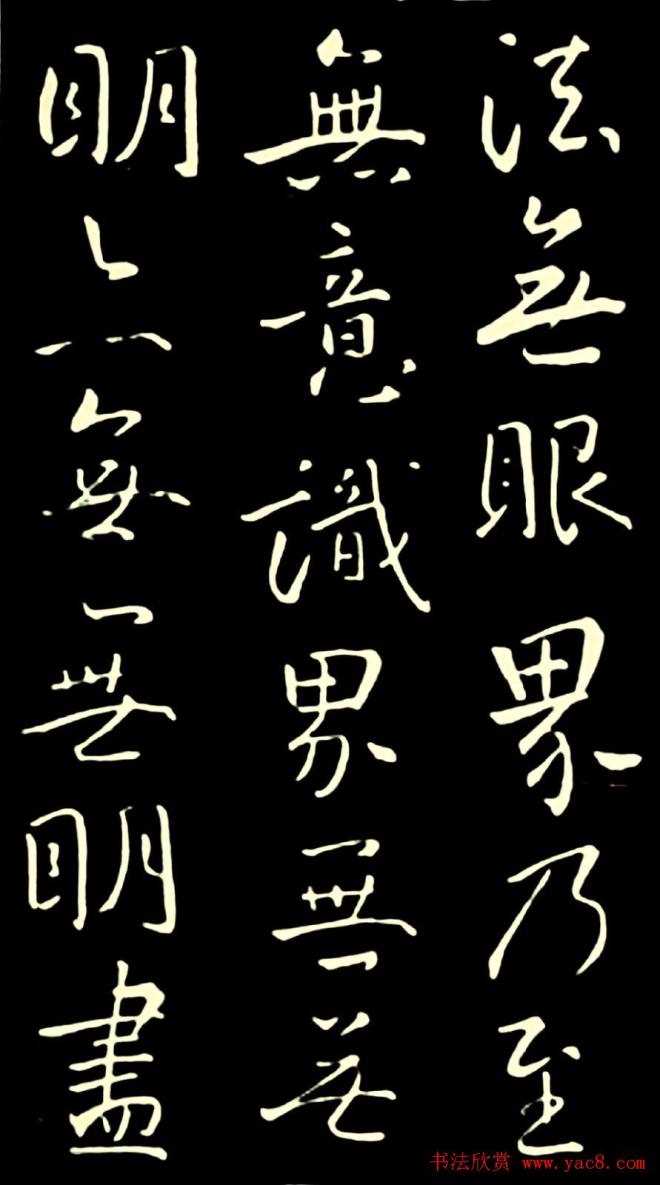 法無眼界乃至
無意識界無無
明亦無無明盡
书法欣赏 www.yac8.com